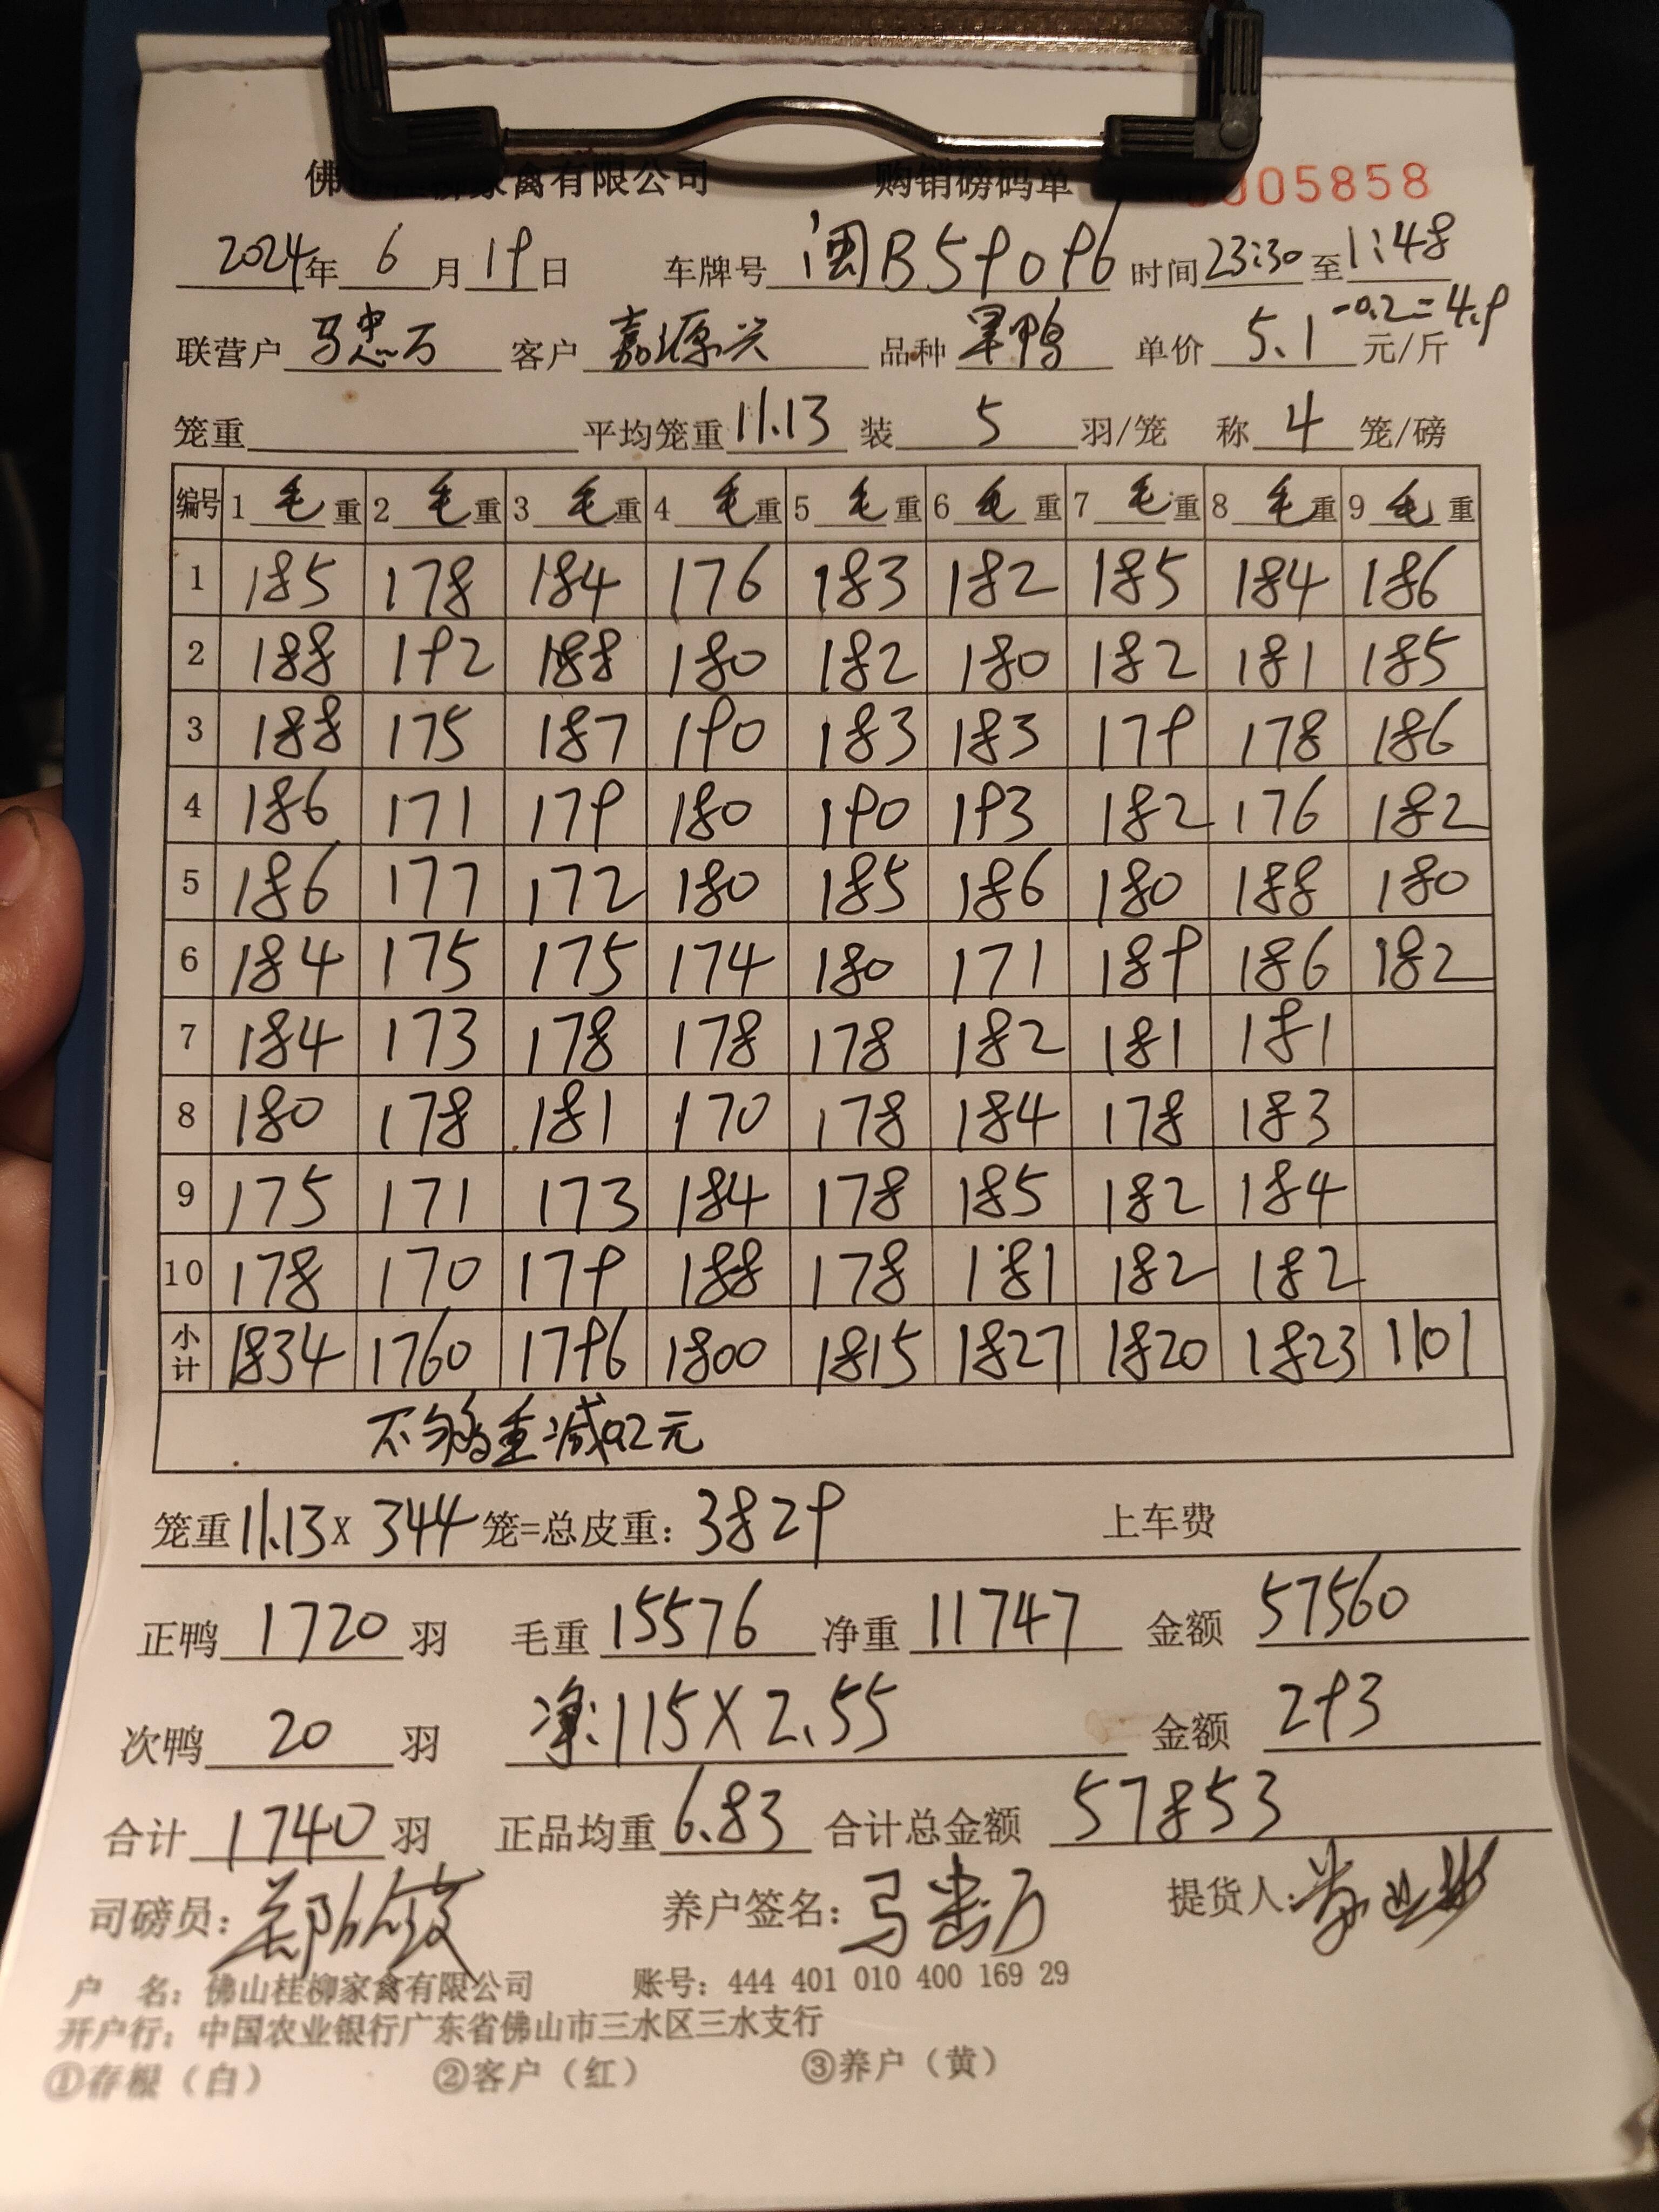 佛山桂柳家禽有限公司 购销磅码单 0005858
2024年 6 月 19 日 车牌号 闽B59096 时间 23:30 至 1:48
联营户 马忠万 客户 嘉源兴 品种 单价 5.1 元/斤 -0.2=4.9
笼重 平均笼重 11.13 装 5 羽/笼 称 4 笼/磅
编号 1 毛 重 2 毛 重 3 毛 重 4 毛 重 5 毛 重 6 毛 重 7 毛 重 8 毛 重 9 毛 重
1 185 178 184 176 183 182 185 184 186
2 188 192 188 180 182 180 182 181 185
3 188 175 187 190 183 183 179 178 186
4 186 171 179 180 190 193 182 176 182
5 186 177 172 180 185 186 180 188 180
6 184 175 175 174 180 171 189 186 182
7 184 173 178 178 178 182 181 181
8 180 178 181 170 178 184 178 183
9 175 171 173 184 178 185 182 184
10 178 170 179 188 178 181 182 182
小计 1834 1760 1796 1800 1815 1827 1820 1823 1101
不够重减0.2元
笼重 11.13 X 344 笼=总皮重: 3829 上车费
正鸭 1720 羽 毛重 15576 净重 11747 金额 57560
次鸭 20 羽 净:115X2.55 金额 293
合计 1740 羽 正品均重 6.83 合计总金额 57853
司磅员: 养户签名: 马忠万 提货人:
户 名: 佛山桂柳家禽有限公司 账号: 444 401 010 400 169 29
开户行: 中国农业银行广东省佛山市三水区三水支行
①存根（白） ②客户（红） ③养户（黄）